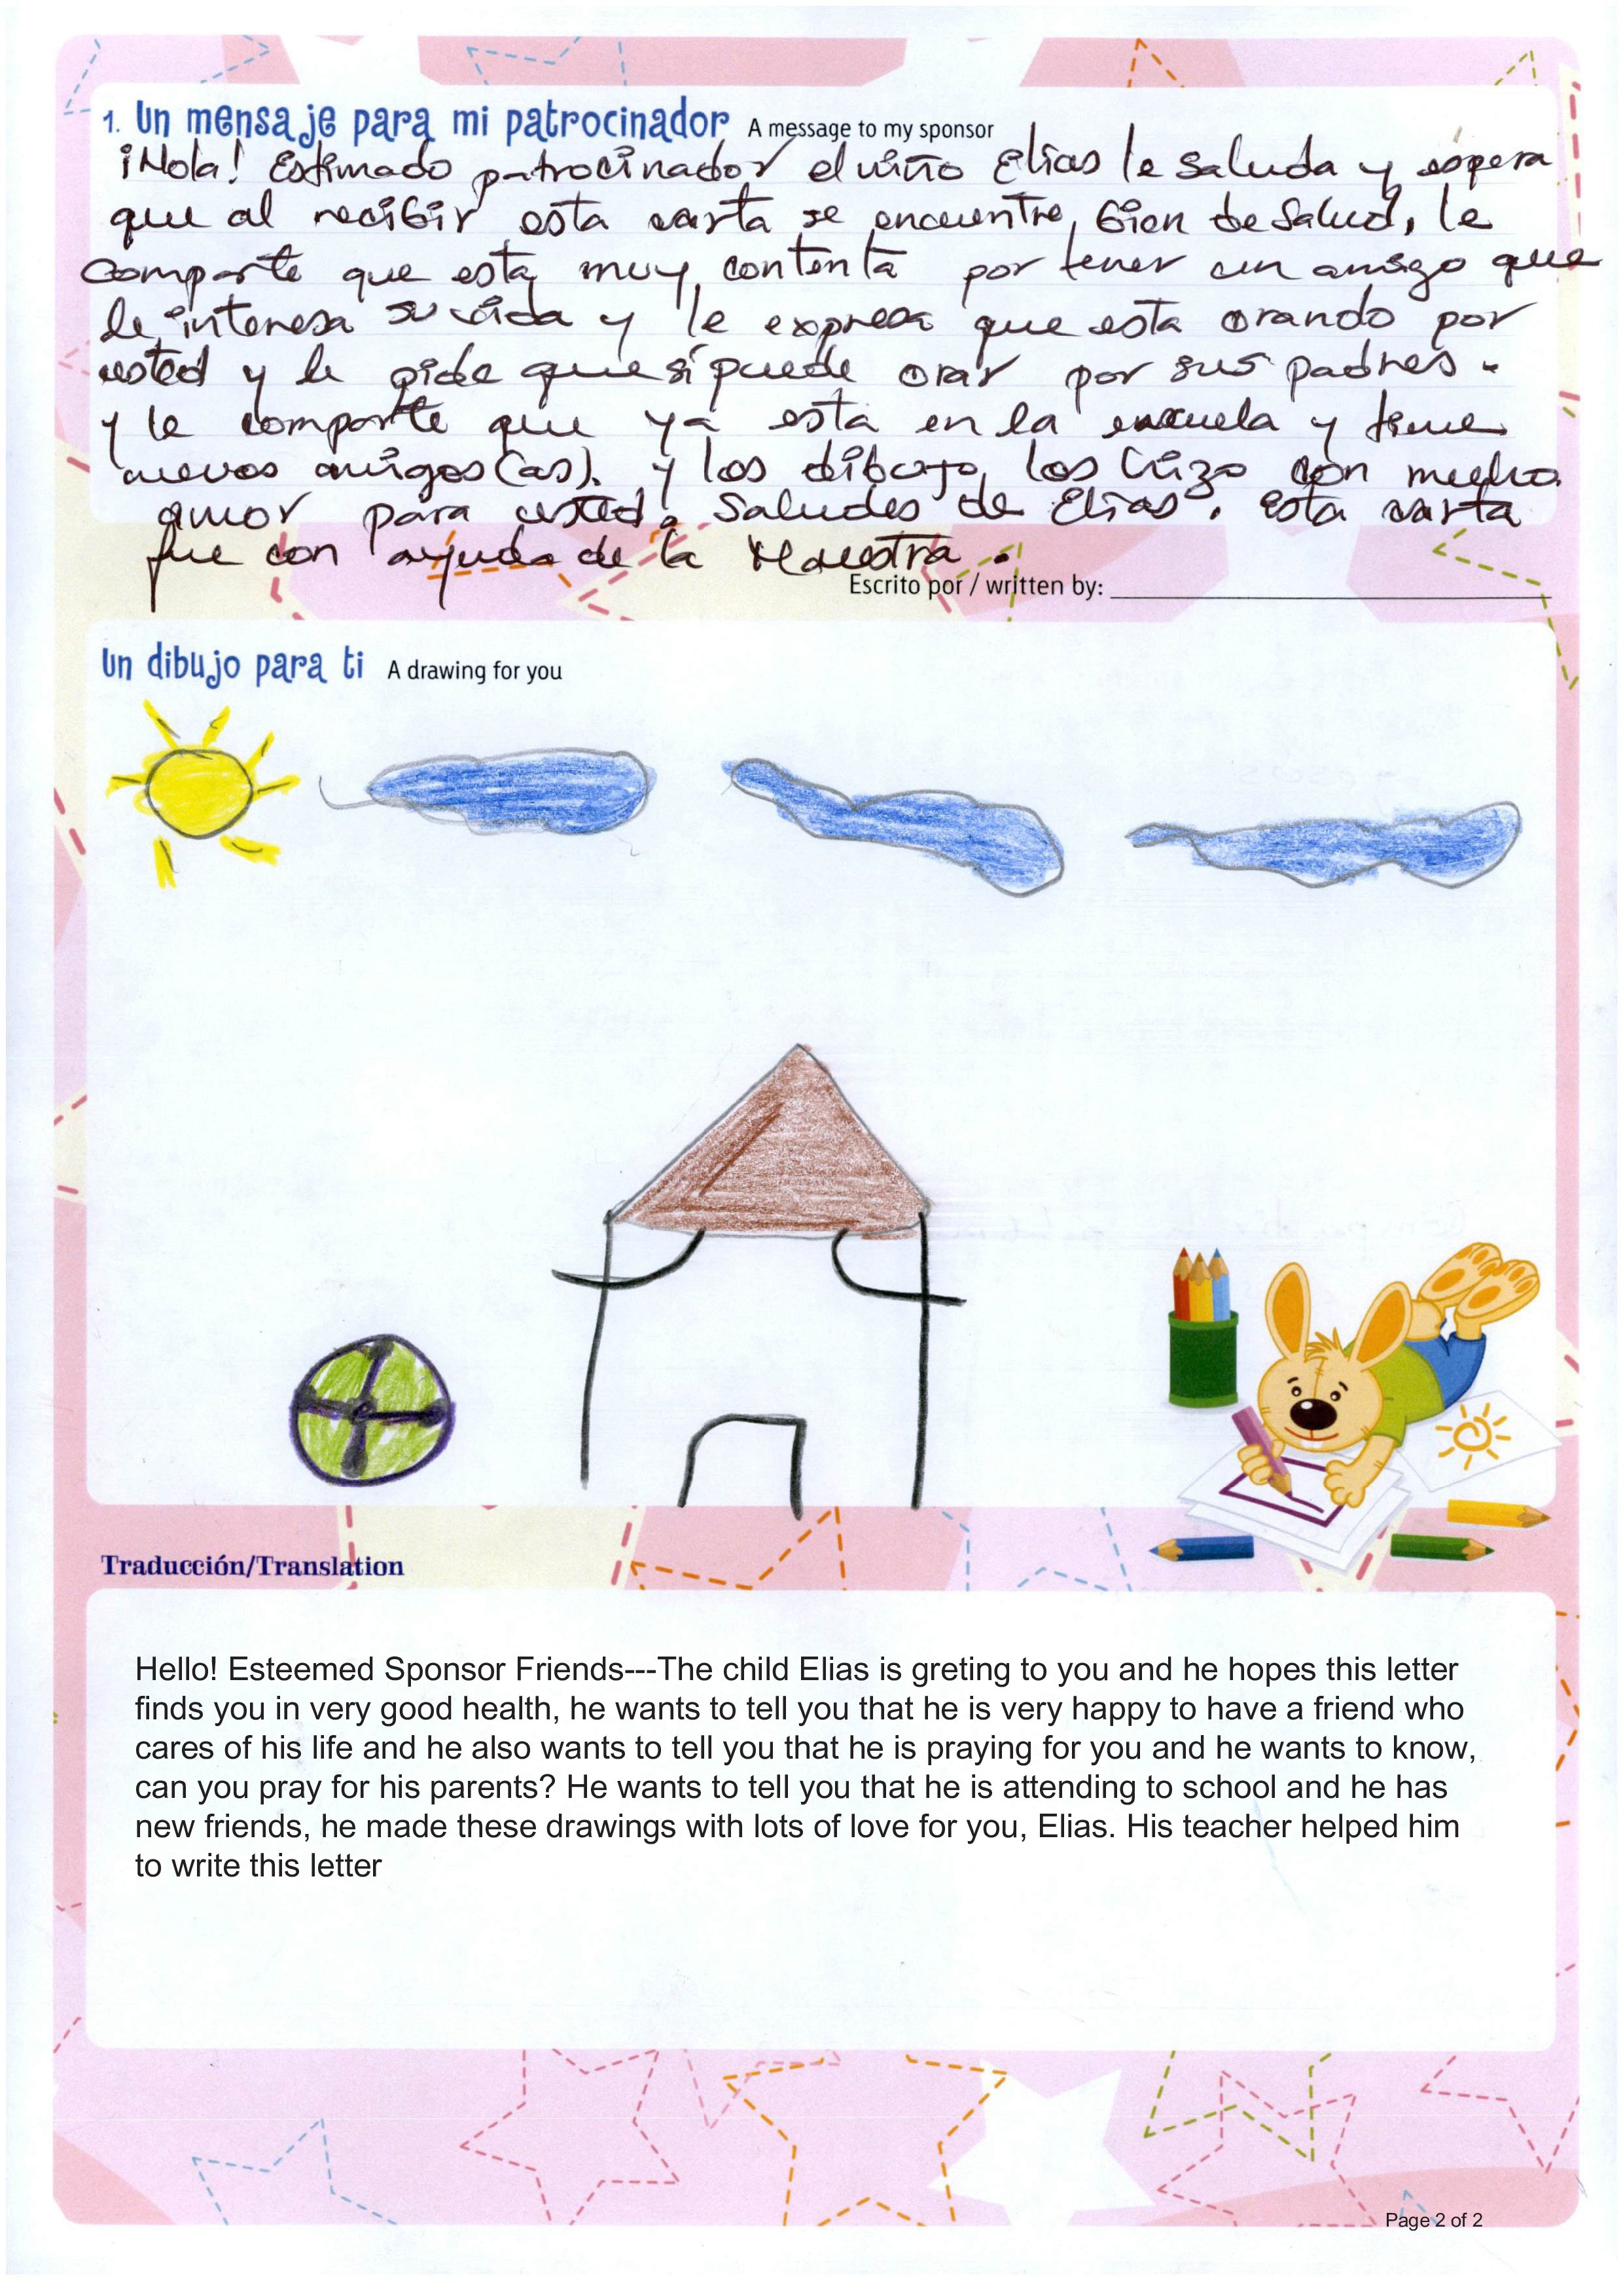 1. Un mensaje para mi patrocinador A message to my sponsor
¡Hola! Estimado patrocinador el niño Elias le saluda y espera
que al recibir esta carta se encuentre, bien de salud, le
comparte que esta muy contenta por tener un amigo que
le interesa su vida y le expresa que esta orando por
usted y le pide que si puede orar por sus padres.
y le comparte que ya esta en la escuela y tiene
nuevos amigos(as). y los dibujo los hizo con mucho
amor para usted. Saludes de Elias. esta carta
fue con ayuda de la Maestra.
Escrito por / written by:
Un dibujo para ti A drawing for you
Traducción/Translation
Hello! Esteemed Sponsor Friends---The child Elias is greting to you and he hopes this letter
finds you in very good health, he wants to tell you that he is very happy to have a friend who
cares of his life and he also wants to tell you that he is praying for you and he wants to know,
can you pray for his parents? He wants to tell you that he is attending to school and he has
new friends, he made these drawings with lots of love for you, Elias. His teacher helped him
to write this letter
Page 2 of 2